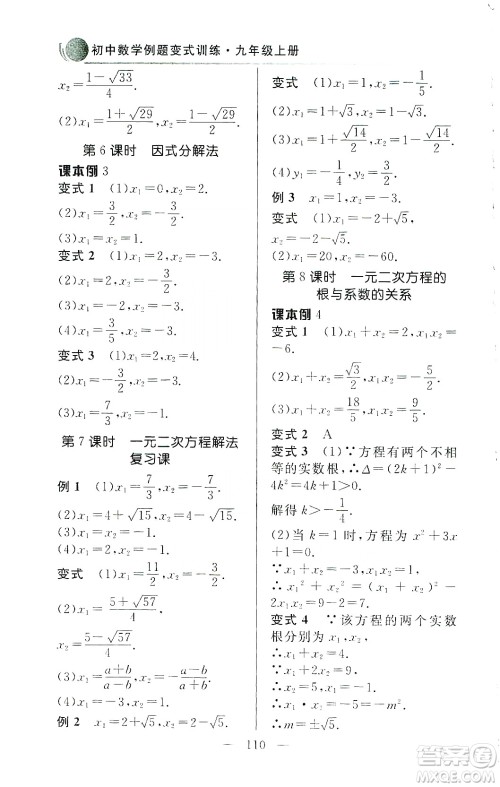 初中数学例题变式训练·九年级上册
x₂=(1-√33)/4.
(2)x₁=(1+√29)/2,x₂=(1-√29)/2.
第6课时 因式分解法
课本例3
变式1 (1)x₁=0,x₂=2.
(2)x₁=3/2,x₂=-3/2.
(3)x₁=x₂=1.
变式2 (1)x₁=2,x₂=-1/3.
(2)x₁=x₂=1.
(3)x₁=2,x₂=-3/2.
(4)x₁=3/5,x₂=-1.
变式3 (1)x₁=x₂=2.
(2)x₁=-3/2,x₂=-1.
(3)x₁=7/3,x₂=-1.
第7课时 一元二次方程解法
复习课
例1 (1)x₁=7/3,x₂=-7/3.
(2)x₁=4+√15,x₂=4-√15.
(3)x₁=x₂=2.
变式 (1)x₁=11/2,x₂=-1/2.
(2)x₁=(5+√57)/4,
x₂=(5-√57)/4.
(3)x₁=(a+b)/(a-b),x₂=-(a-b)/(a+b).
(4)x₁=3,x₂=-1.
例2 x₁=2+√5,x₂=2-√5.
变式 (1)x₁=1,x₂=-1/5.
(2)x₁=1+√3,x₂=1-√3.
(3)x₁=1+√14/2,x₂=1-√14/2.
(4)y₁=-1/3,y₂=1.
例3 (1)x₁=-2+√5,
x₂=-2-√5.
(2)x₁=20,x₂=-60.
第8课时 一元二次方程的
根与系数的关系
课本例4
变式1 (1)x₁+x₂=2,x₁x₂=
-6.
(2)x₁+x₂=√3/2,x₁x₂=-1.
(3)x₁+x₂=18/5,x₁x₂=9/5.
变式2 A
变式3 (1)∵方程有两个不相
等的实数根,∴Δ=(2k+1)²-
4k²=4k+1>0.
解得k>-1/4.
(2)当k=1时,方程为x²+3x
+1=0.
∵x₁+x₂=-3,x₁x₂=1,
∴x₁²+x₂²=(x₁+x₂)²-
2x₁x₂=9-2=7.
变式4 ∵该方程的两个实数
根分别为x₁,x₂,
∴x₁+x₂=6.
∴x₁=x₂=3.
∴x₁·x₂=m²+4=9.
∴m=±√5.
— 110 —